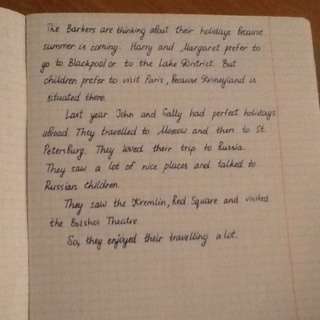 The Barkers are thinking about their holidays because
summer is coming. Harry and Margaret prefer to
go to Blackpool or to the Lake District. But
children prefer to visit Paris, because Disneyland is
situated there.
Last year John and Sally had perfect holidays
abroad. They travelled to Moscow and then to St.
Petersburg. They loved their trip to Russia.
They saw a lot of nice places and talked to
Russian children.
They saw the Kremlin, Red Square and visited
the Bolshoi Theatre.
So, they enjoyed their travelling a lot.